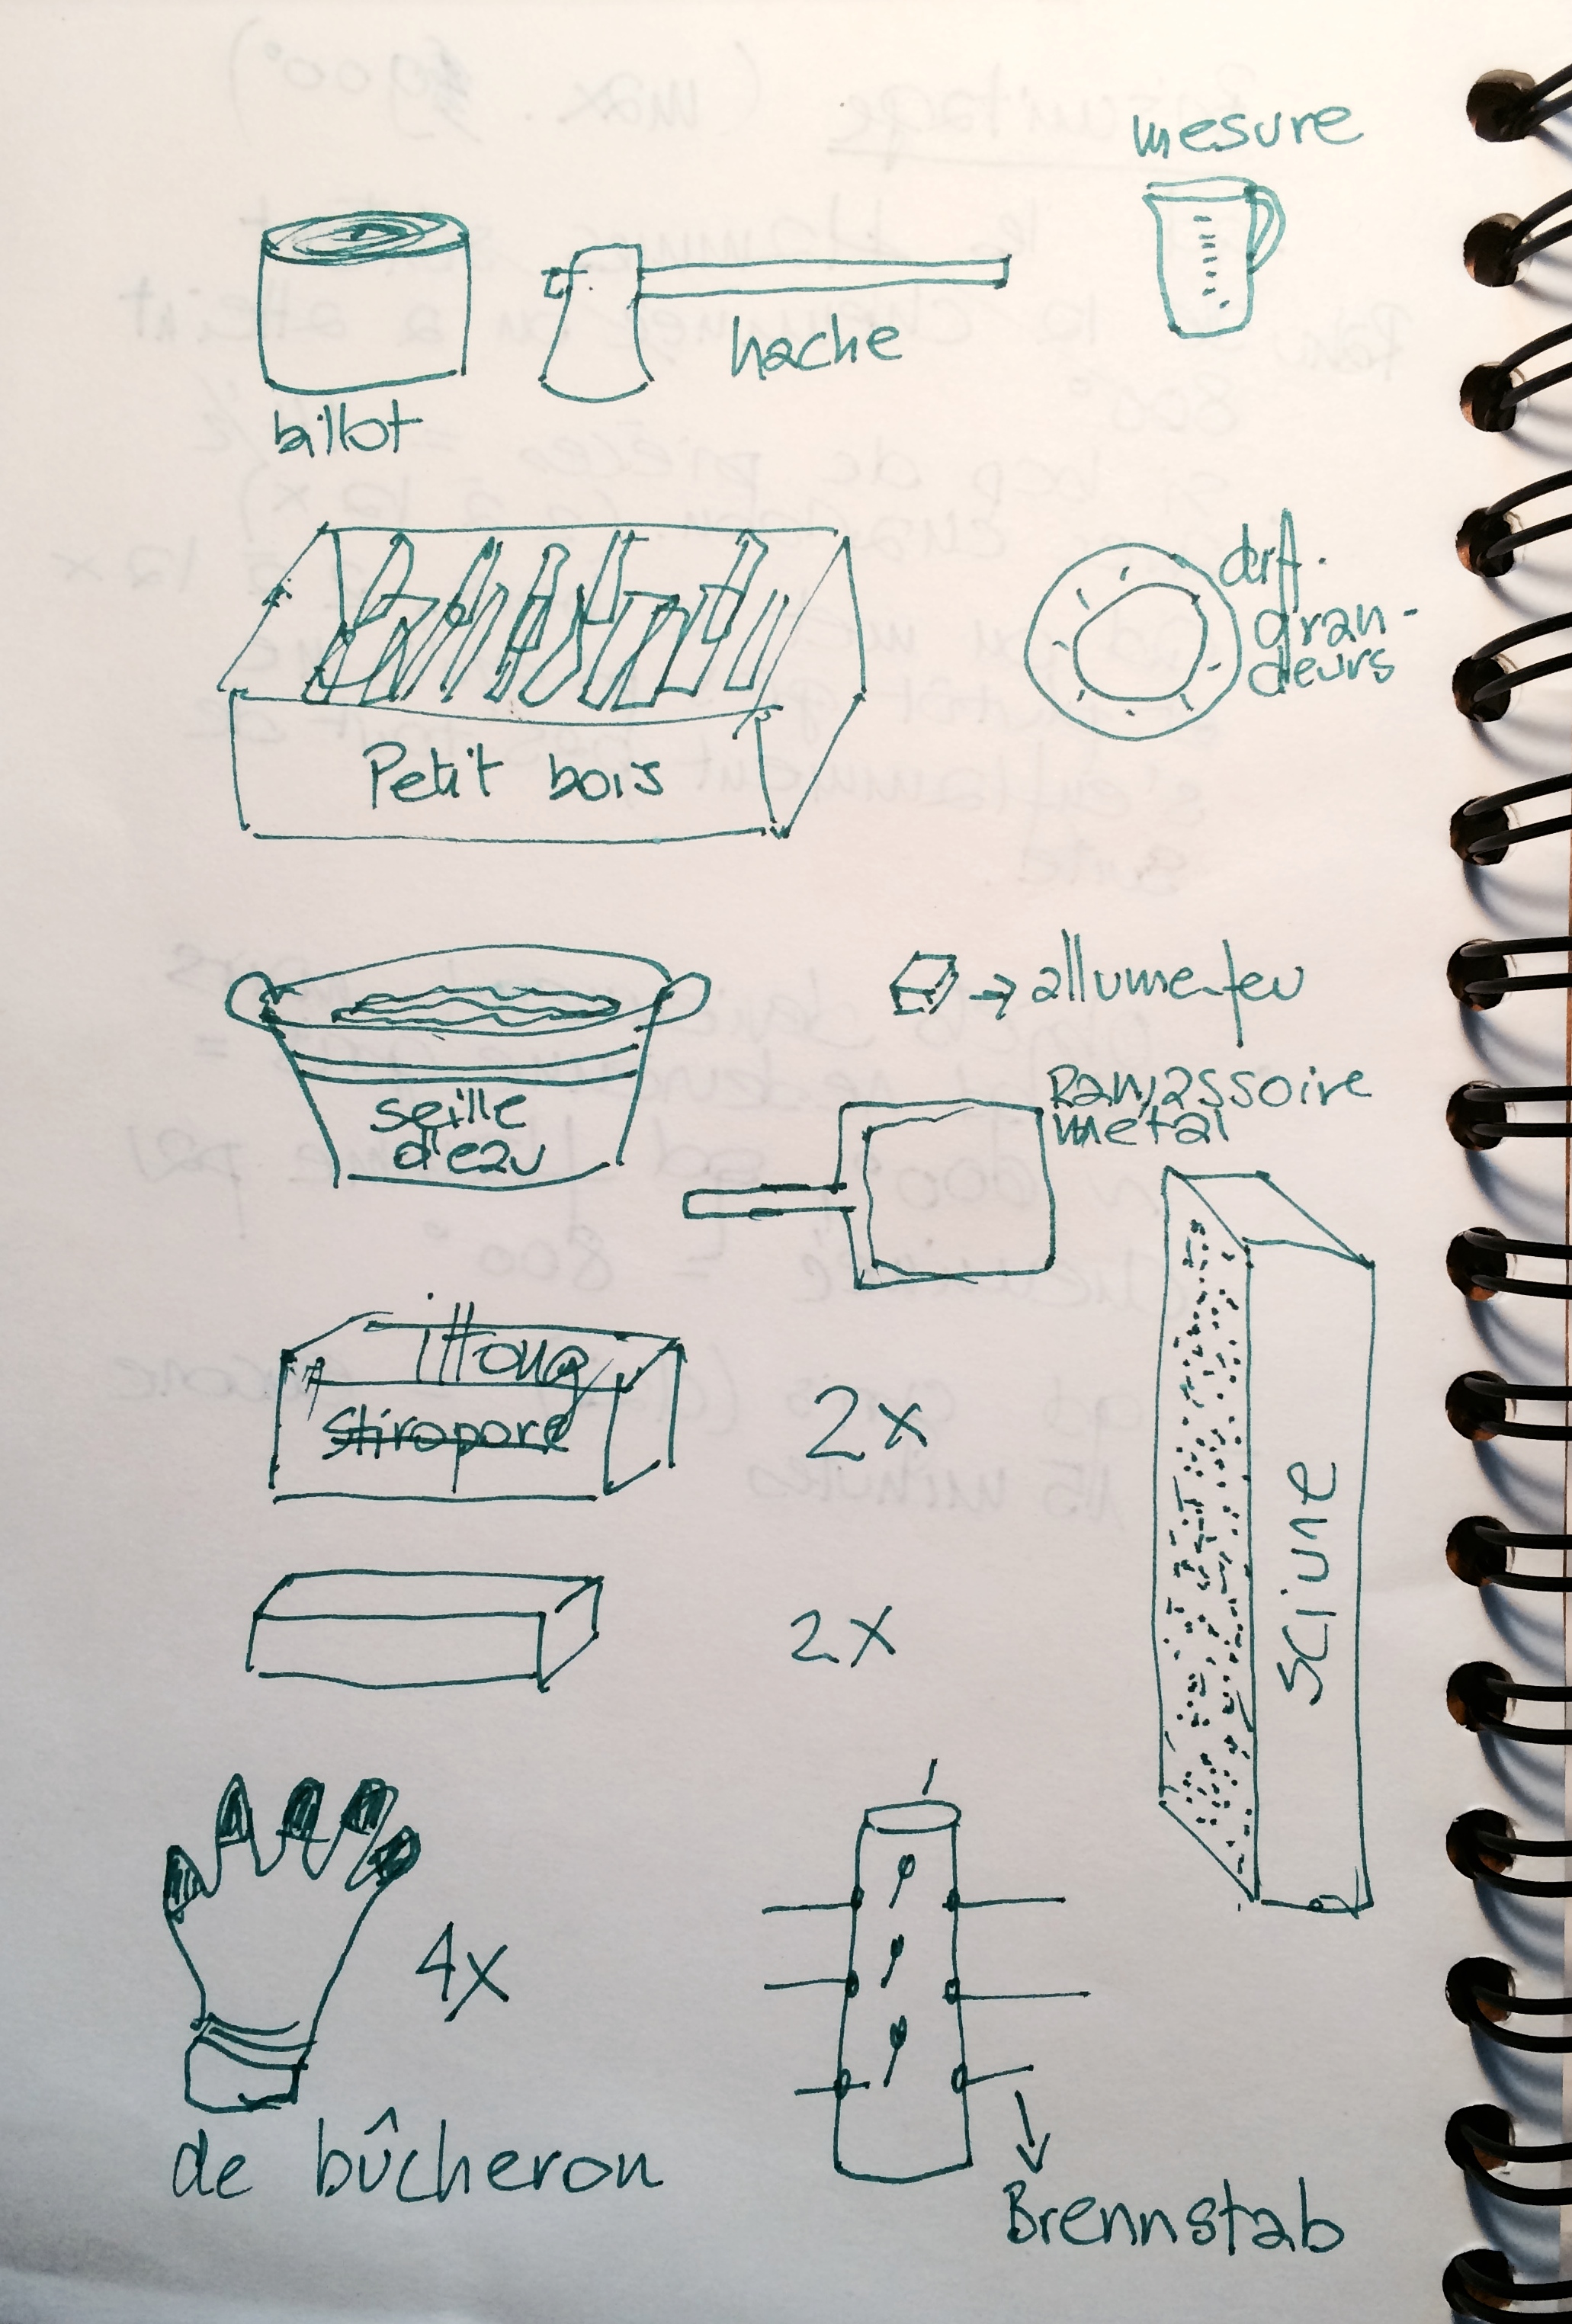 mesure
hache
billot
diff.
gran-
deurs
Petit bois
allume-feu
seille
d'eau
Ramassoire
metal
ittong
Stiropore
2x
Sciure
2x
4x
de bûcheron
Brennstab